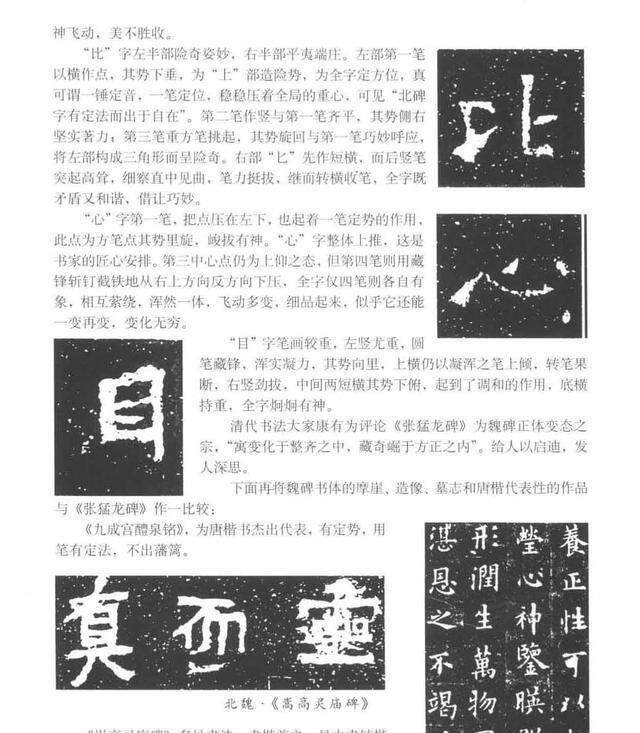 神飞动，美不胜收。
“比”字左半部险奇姿妙，右半部平夷端庄。左部第一笔
以横作点，其势下垂，为“上”部造险势，为全字定方位，真
可谓一锤定音，一笔定位，稳稳压着全局的重心，可见“北碑
字有定法而出于自在”。第二笔作竖与第一笔齐平，其势侧右
坚实著力；第三笔重方笔挑起，其势旋回与第一笔巧妙呼应，
将左部构成三角形而呈险奇。右部“匕”先作短横，而后竖笔
突起高耸，细察直中见曲，笔力挺拔，继而转横收笔，全字既
矛盾又和谐，借让巧妙。
比
“心”字第一笔，把点压在左下，也起着一笔定势的作用，
此点为方笔点其势里旋，峻拔有神。“心”字整体上推，这是
书家的匠心安排。第三中心点仍为上仰之态，但第四笔则用藏
锋斩钉截铁地从右上方向反方向下压，全字仅四笔则各自有
象，相互萦绕，浑然一体，飞动多变，细品起来，似乎它还能
一变再变，变化无穷。
心
目
“目”字笔画较重，左竖尤重，圆
笔藏锋，浑实凝力，其势向里，上横仍以凝浑之笔上倾，转笔果
断，右竖劲拔，中间两短横其势下俯，起到了调和的作用，底横
持重，全字炯炯有神。
清代书法大家康有为评论《张猛龙碑》为魏碑正体变态之
宗，“寓变化于整齐之中，藏奇崛于方正之内”。给人以启迪，发
人深思。
下面再将魏碑书体的摩崖、造像、墓志和唐楷代表性的作品
与《张猛龙碑》作一比较：
《九成宫醴泉铭》，为唐楷书杰出代表，有定势，用
笔有定法，不出藩篱。
養正性可以
瑩心神鑒暎
形潤生萬物
湛恩之不竭
真而靈
北魏·《嵩高灵庙碑》